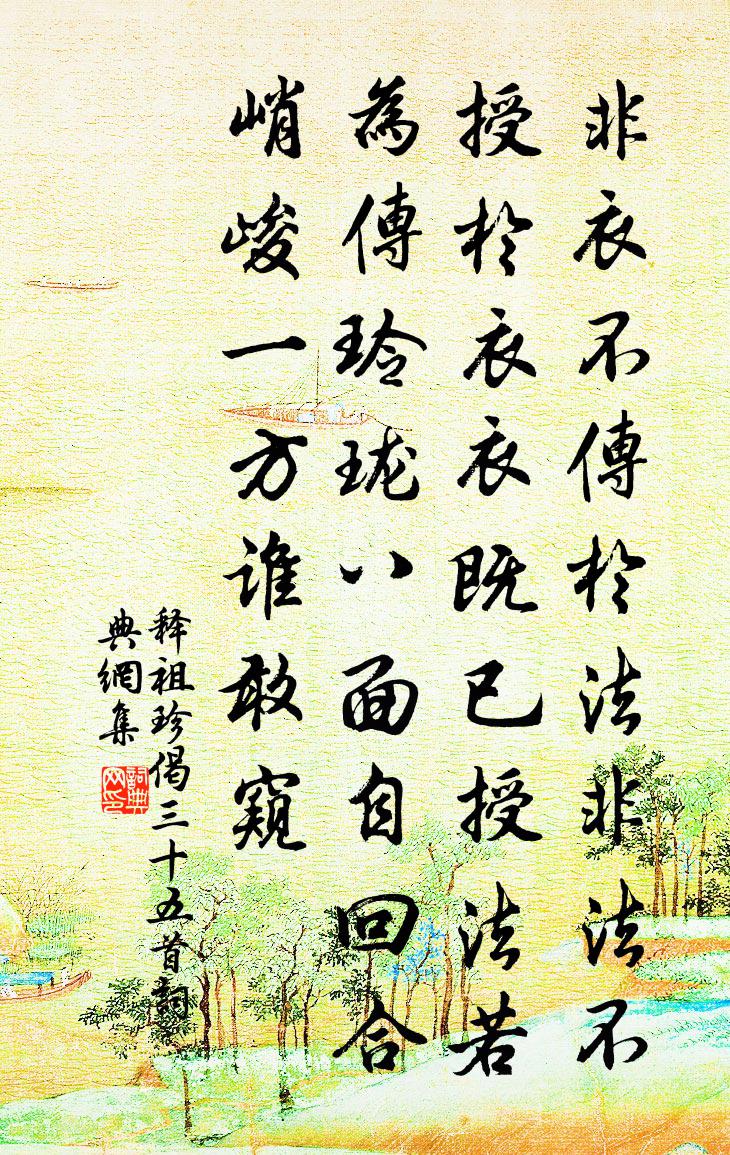 非衣不傳於法非法不
授於衣衣既已授法若
為傳玲瓏八面自回合
峭峻一方誰敢窺
释祖珍偈三十五首詞
典網集
詞典
网印